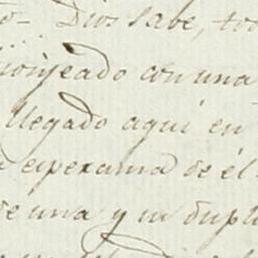 Dios sabe, to
onjeado con una
llegado aquí en
esperansa de él
de una y su dupl